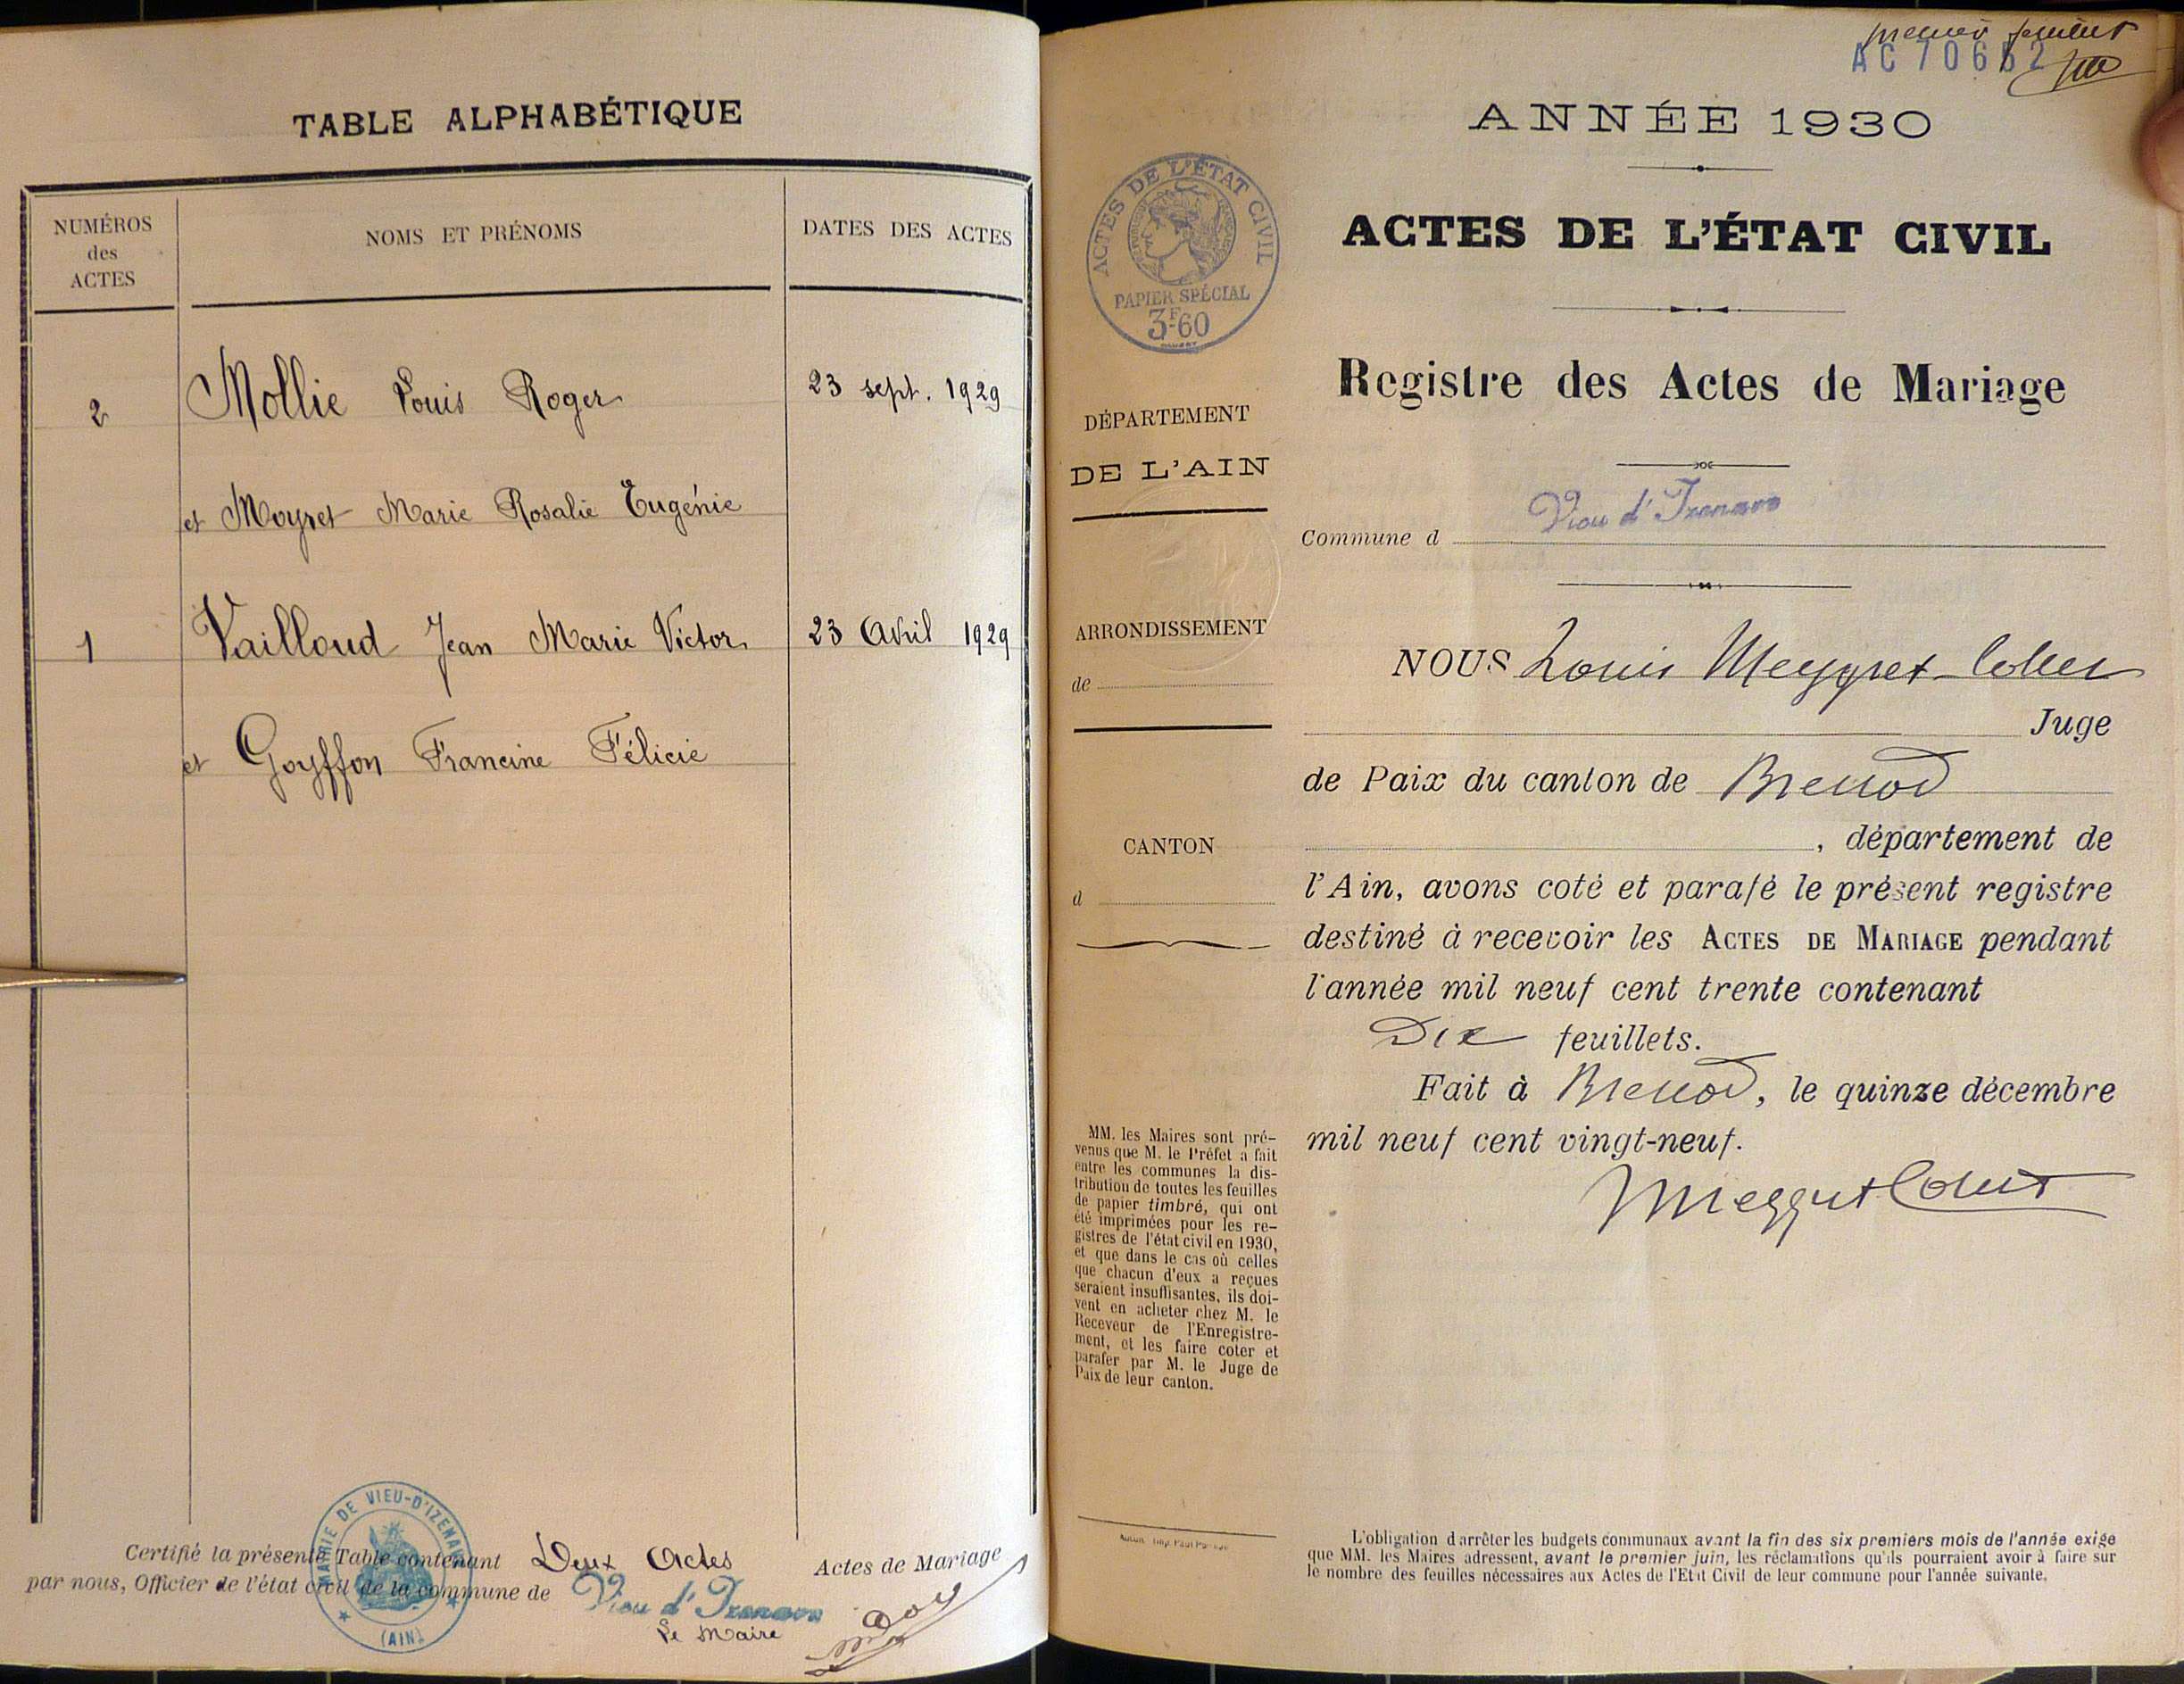 TABLE ALPHABÉTIQUE
NUMÉROS
des
ACTES
NOMS ET PRÉNOMS
DATES DES ACTES
2 Mollie Louis Roger 23 sept. 1929
et Moyret Marie Rosalie Eugénie
1 Vailloud Jean Marie Victor 23 Avril 1929
et Goyffon Francine Félicie
Certifié la présente Table contenant Deux Actes Actes de Mariage
par nous, Officier de l'état civil de la commune de Vieu d'Izenave
Le Maire
MAIRIE DE VIEU-D'IZENAVE
(AIN)
premier feuillet
AC 70652
ANNÉE 1930
ACTES DE L'ÉTAT CIVIL
PAPIER SPÉCIAL
3F60
ACTES DE L'ÉTAT CIVIL
Registre des Actes de Mariage
DÉPARTEMENT
DE L'AIN
Commune d Vieu d'Izenave
ARRONDISSEMENT
de
CANTON
d
NOUS Louis Meygret-Collet
Juge
de Paix du canton de Brenod
, département de
l'Ain, avons coté et parafé le présent registre
destiné à recevoir les ACTES DE MARIAGE pendant
l'année mil neuf cent trente contenant
Dix feuillets.
Fait à Brenod, le quinze décembre
mil neuf cent vingt-neuf.
Meygret Collet
MM. les Maires sont pré-
venus que M. le Préfet a fait
entre les communes la dis-
tribution de toutes les feuilles
de papier timbré, qui ont
été imprimées pour les re-
gistres de l'état civil en 1930,
et que dans le cas où celles
que chacun d'eux a reçues
seraient insuffisantes, ils doi-
vent en acheter chez M. le
Receveur de l'Enregistre-
ment, et les faire coter et
parafer par M. le Juge de
Paix de leur canton.
L'obligation d'arrêter les budgets communaux avant la fin des six premiers mois de l'année exige
que MM. les Maires adressent, avant le premier juin, les réclamations qu'ils pourraient avoir à faire sur
le nombre des feuilles nécessaires aux Actes de l'Etat Civil de leur commune pour l'année suivante.